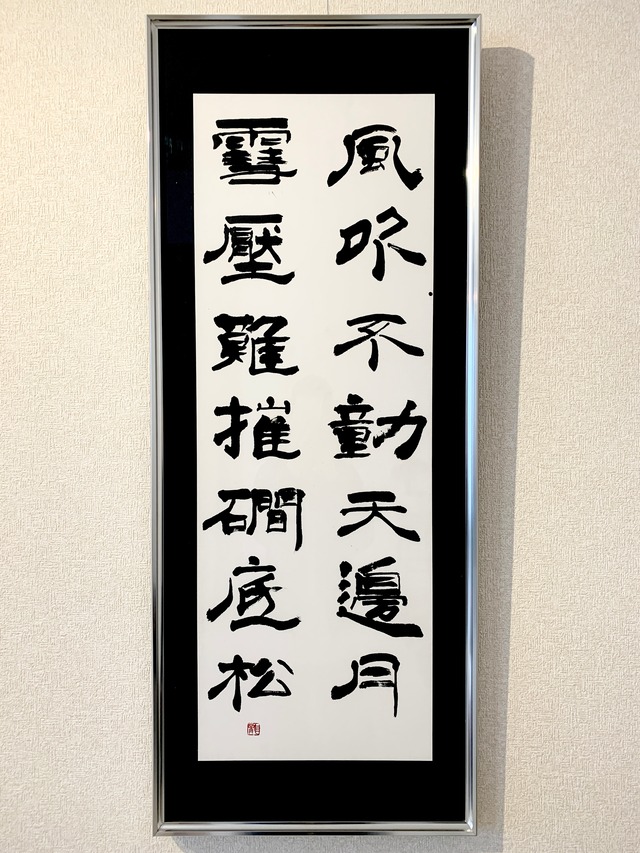 風吹不動天邊月
雪壓難摧磵底松